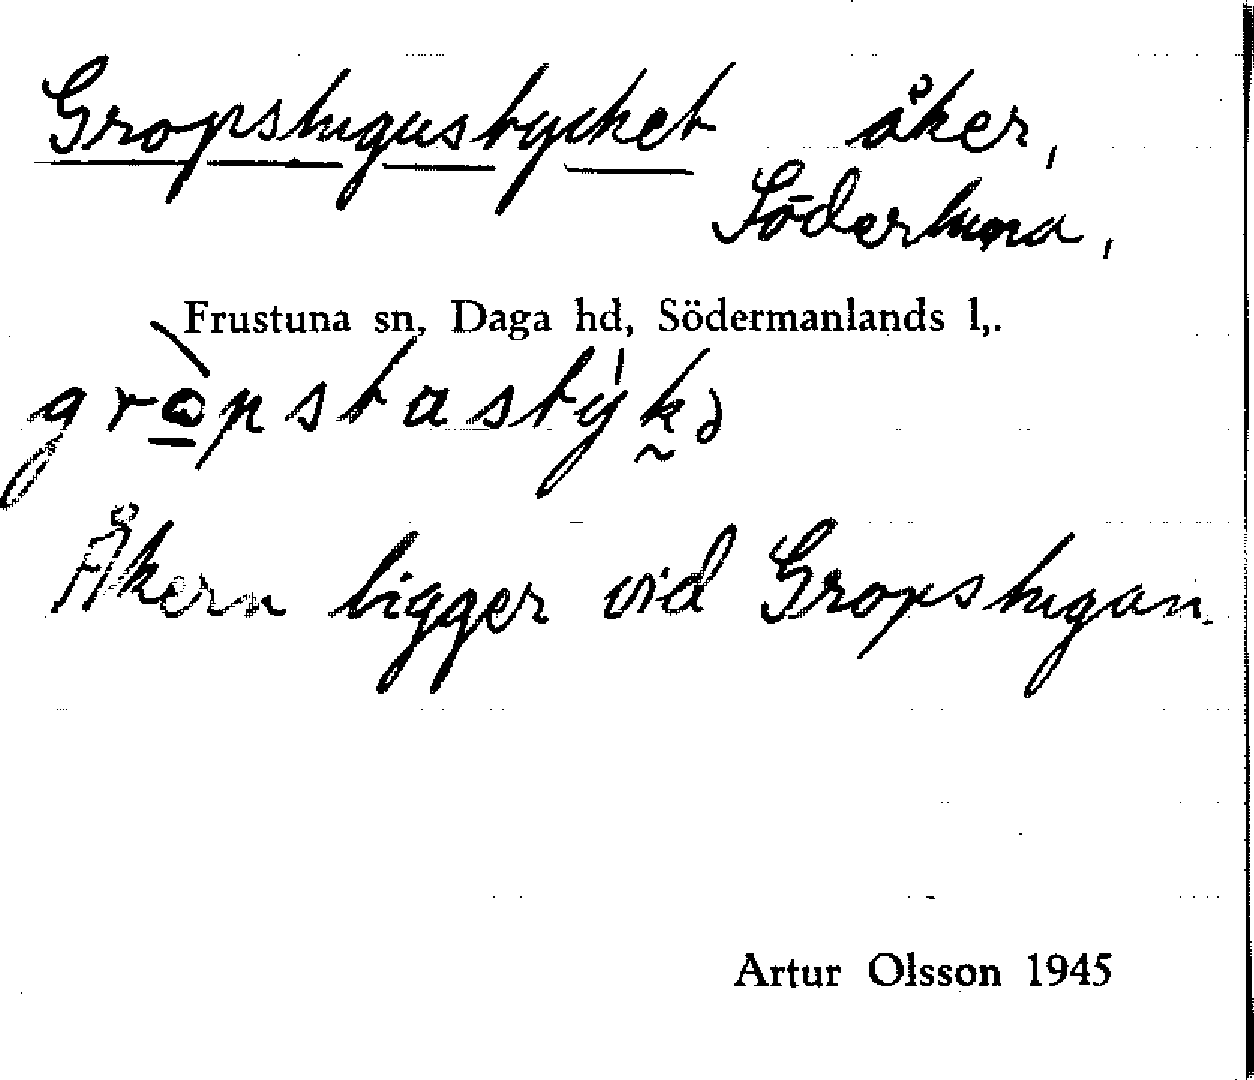 Gropstugustycket åker,
Södertuna,
Frustuna sn, Daga hd, Södermanlands l,.
grò̱pstastýk̰ə
Åkern ligger vid Gropstugan.
Artur Olsson 1945